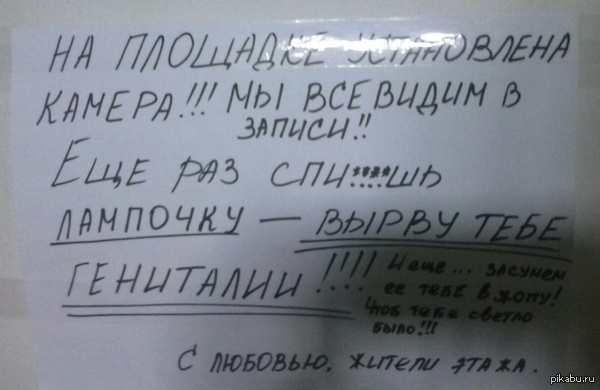 НА ПЛОЩАДКЕ УСТАНОВЛЕНА
КАМЕРА!!! МЫ ВСЕ ВИДИМ В
ЗАПИСИ!!
ЕЩЕ РАЗ СПИ....ШЬ
ЛАМПОЧКУ — ВЫРВУ ТЕБЕ
ГЕНИТАЛИИ!!!!
И еще... засунем
ее тебе в жопу!
Чтоб тебе светло
было!!!
С ЛЮБОВЬЮ. ЖИТЕЛИ ЭТАЖА.
pikabu.ru